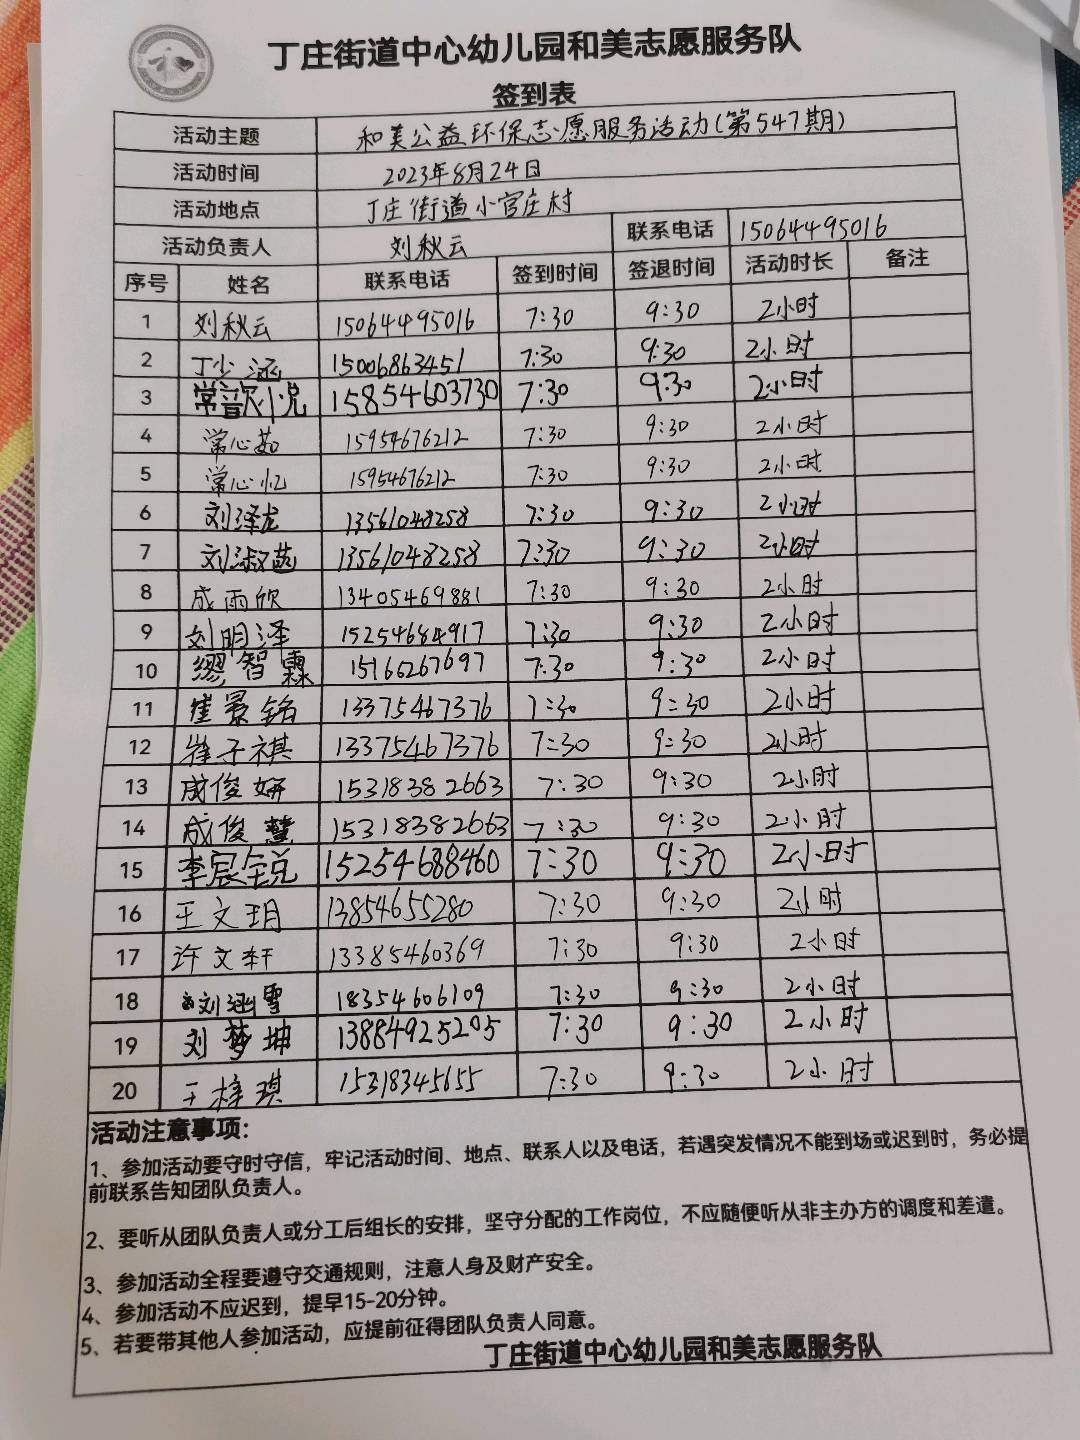 丁庄街道中心幼儿园和美志愿服务队
签到表
活动主题 和美公益环保志愿服务活动(第547期)
活动时间 2023年8月24日
活动地点 丁庄街道小官庄村
活动负责人 刘秋云 联系电话 15064495016
序号 姓名 联系电话 签到时间 签退时间 活动时长 备注
1 刘秋云 15064495016 7:30 9:30 2小时
2 丁少涵 15006863451 7:30 9:30 2小时
3 常歆悦 15854603730 7:30 9:30 2小时
4 常心茹 15954676212 7:30 9:30 2小时
5 常心忆 15954676212 7:30 9:30 2小时
6 刘泽龙 13561048258 7:30 9:30 2小时
7 刘淑菡 13561048258 7:30 9:30 2小时
8 成雨欣 13405469881 7:30 9:30 2小时
9 刘明泽 15254684917 7:30 9:30 2小时
10 缪智霖 15166267697 7:30 9:30 2小时
11 崔景铭 13375467376 7:30 9:30 2小时
12 崔子祺 13375467376 7:30 9:30 2小时
13 成俊妍 15318382663 7:30 9:30 2小时
14 成俊慧 15318382663 7:30 9:30 2小时
15 李宸锐 15254688460 7:30 9:30 2小时
16 王文玥 13854655280 7:30 9:30 2小时
17 许文轩 13385460369 7:30 9:30 2小时
18 刘涵雪 18354606109 7:30 9:30 2小时
19 刘梦坤 13884925205 7:30 9:30 2小时
20 王梓琪 15318345655 7:30 9:30 2小时
活动注意事项：
1、参加活动要守时守信，牢记活动时间、地点、联系人以及电话，若遇突发情况不能到场或迟到时，务必提
前联系告知团队负责人。
2、要听从团队负责人或分工后组长的安排，坚守分配的工作岗位，不应随便听从非主办方的调度和差遣。
3、参加活动全程要遵守交通规则，注意人身及财产安全。
4、参加活动不应迟到，提早15-20分钟。
5、若要带其他人参加活动，应提前征得团队负责人同意。
丁庄街道中心幼儿园和美志愿服务队